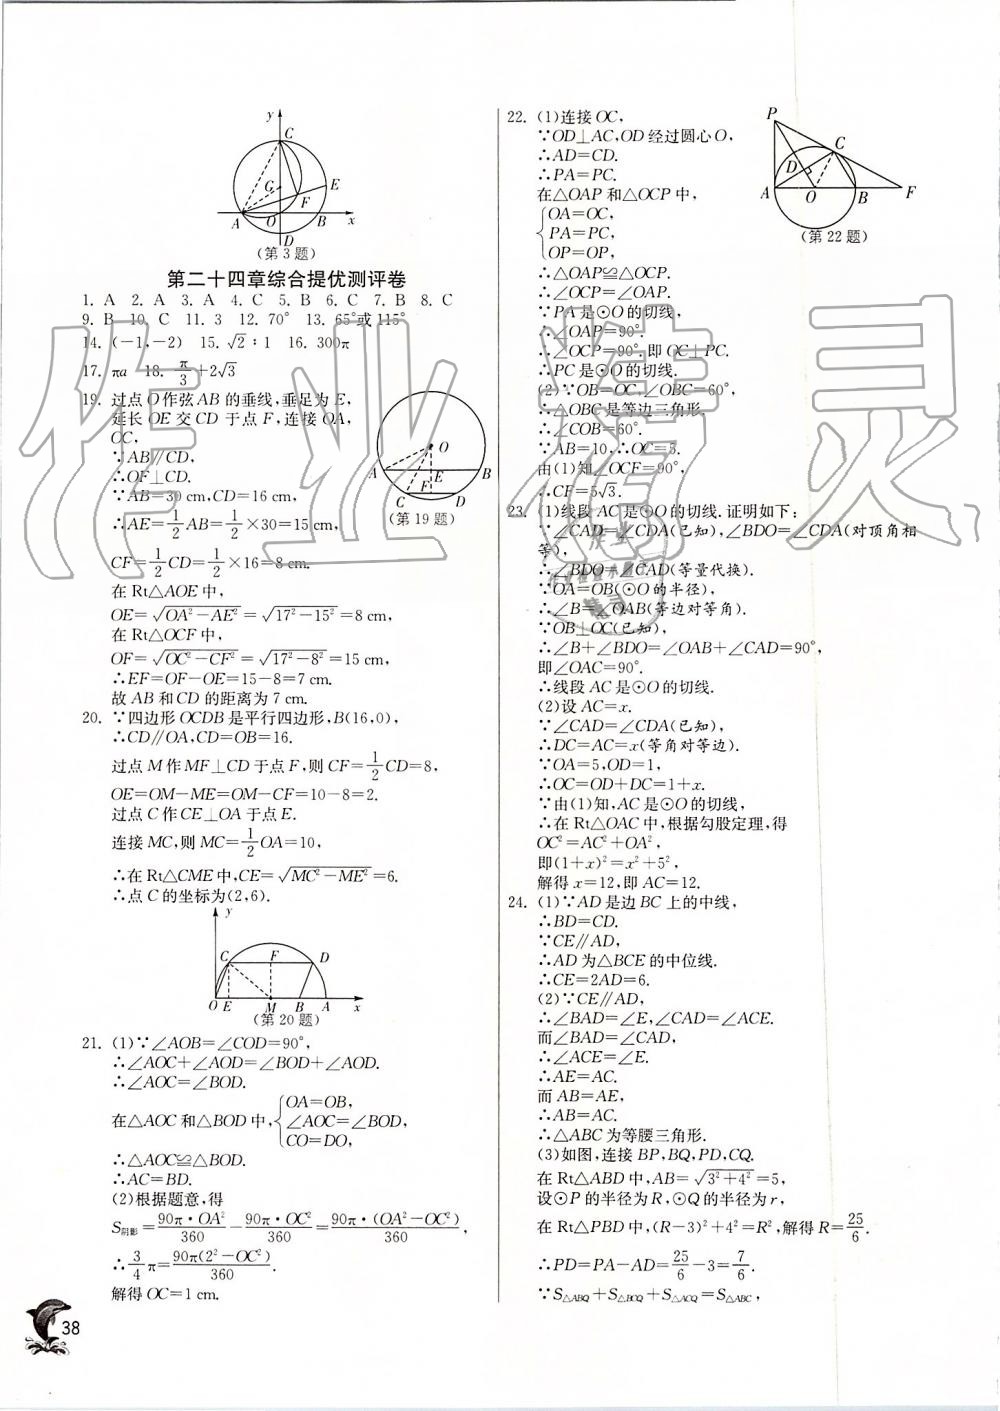 (第3题)
第二十四章综合提优测评卷
1. A 2. A 3. A 4. C 5. B 6. C 7. B 8. C
9. B 10. C 11. 3 12. 70° 13. 65°或115°
14. (-1,-2) 15. √2∶1 16. 300π
17. πa 18. π/3+2√3
19. 过点O作弦AB的垂线,垂足为E,
延长OE交CD于点F,连接OA,
OC,
∵AB∥CD,
∴OF⊥CD.
∵AB=30 cm,CD=16 cm,
∴AE=1/2AB=1/2×30=15 cm,
CF=1/2CD=1/2×16=8 cm.
在Rt△AOE中,
OE=√(OA²-AE²)=√(17²-15²)=8 cm,
在Rt△OCF中,
OF=√(OC²-CF²)=√(17²-8²)=15 cm,
∴EF=OF-OE=15-8=7 cm.
故AB和CD的距离为7 cm.
(第19题)
20. ∵四边形OCDB是平行四边形,B(16,0),
∴CD∥OA,CD=OB=16.
过点M作MF⊥CD于点F,则CF=1/2CD=8,
OE=OM-ME=OM-CF=10-8=2.
过点C作CE⊥OA于点E.
连接MC,则MC=1/2OA=10,
∴在Rt△CME中,CE=√(MC²-ME²)=6.
∴点C的坐标为(2,6).
(第20题)
21. (1)∵∠AOB=∠COD=90°,
∴∠AOC+∠AOD=∠BOD+∠AOD.
∴∠AOC=∠BOD.
在△AOC和△BOD中,{OA=OB,
∠AOC=∠BOD,
CO=DO,
∴△AOC≌△BOD.
∴AC=BD.
(2)根据题意,得
S阴影=90π·OA²/360-90π·OC²/360=90π·(OA²-OC²)/360,
∴3/4π=90π(2²-OC²)/360.
解得OC=1 cm.
38
22. (1)连接OC,
∵OD⊥AC,OD经过圆心O,
∴AD=CD.
∴PA=PC.
在△OAP和△OCP中,
{OA=OC,
PA=PC,
OP=OP,
∴△OAP≌△OCP.
∴∠OCP=∠OAP.
∵PA是⊙O的切线,
∴∠OAP=90°.
∴∠OCP=90°.即OC⊥PC.
∴PC是⊙O的切线.
(2)∵OB=OC,∠OBC=60°,
∴△OBC是等边三角形.
∴∠COB=60°.
∵AB=10,∴OC=5.
由(1)知∠OCF=90°,
∴CF=5√3.
(第22题)
23. (1)线段AC是⊙O的切线.证明如下:
∵∠CAD=∠CDA(已知),∠BDO=∠CDA(对顶角相
等),
∴∠BDO=∠CAD(等量代换).
∵OA=OB(⊙O的半径),
∴∠B=∠OAB(等边对等角).
∵OB⊥OC(已知),
∴∠B+∠BDO=∠OAB+∠CAD=90°,
即∠OAC=90°.
∴线段AC是⊙O的切线.
(2)设AC=x.
∵∠CAD=∠CDA(已知),
∴DC=AC=x(等角对等边).
∵OA=5,OD=1,
∴OC=OD+DC=1+x.
∵由(1)知,AC是⊙O的切线,
∴在Rt△OAC中,根据勾股定理,得
OC²=AC²+OA²,
即(1+x)²=x²+5²,
解得x=12,即AC=12.
24. (1)∵AD是边BC上的中线,
∴BD=CD.
∵CE∥AD,
∴AD为△BCE的中位线.
∴CE=2AD=6.
(2)∵CE∥AD,
∴∠BAD=∠E,∠CAD=∠ACE.
而∠BAD=∠CAD,
∴∠ACE=∠E.
∴AE=AC.
而AB=AE,
∴AB=AC.
∴△ABC为等腰三角形.
(3)如图,连接BP,BQ,PD,CQ.
在Rt△ABD中,AB=√(3²+4²)=5,
设⊙P的半径为R,⊙Q的半径为r,
在Rt△PBD中,(R-3)²+4²=R²,解得R=25/6.
∴PD=PA-AD=25/6-3=7/6.
∵S△ABQ+S△BCQ+S△ACQ=S△ABC,